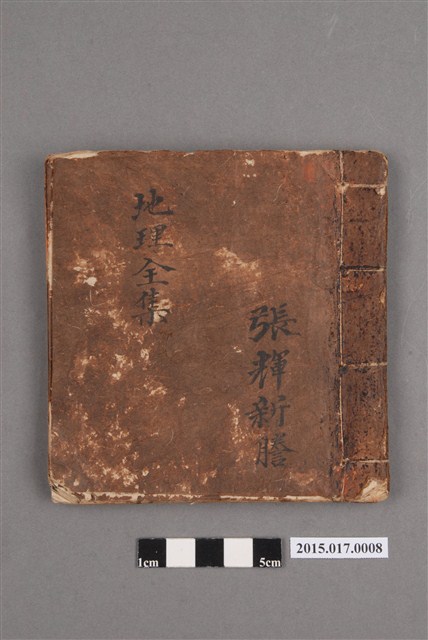 張輝新謄
地理全集
1cm
5cm
2015.017.0008